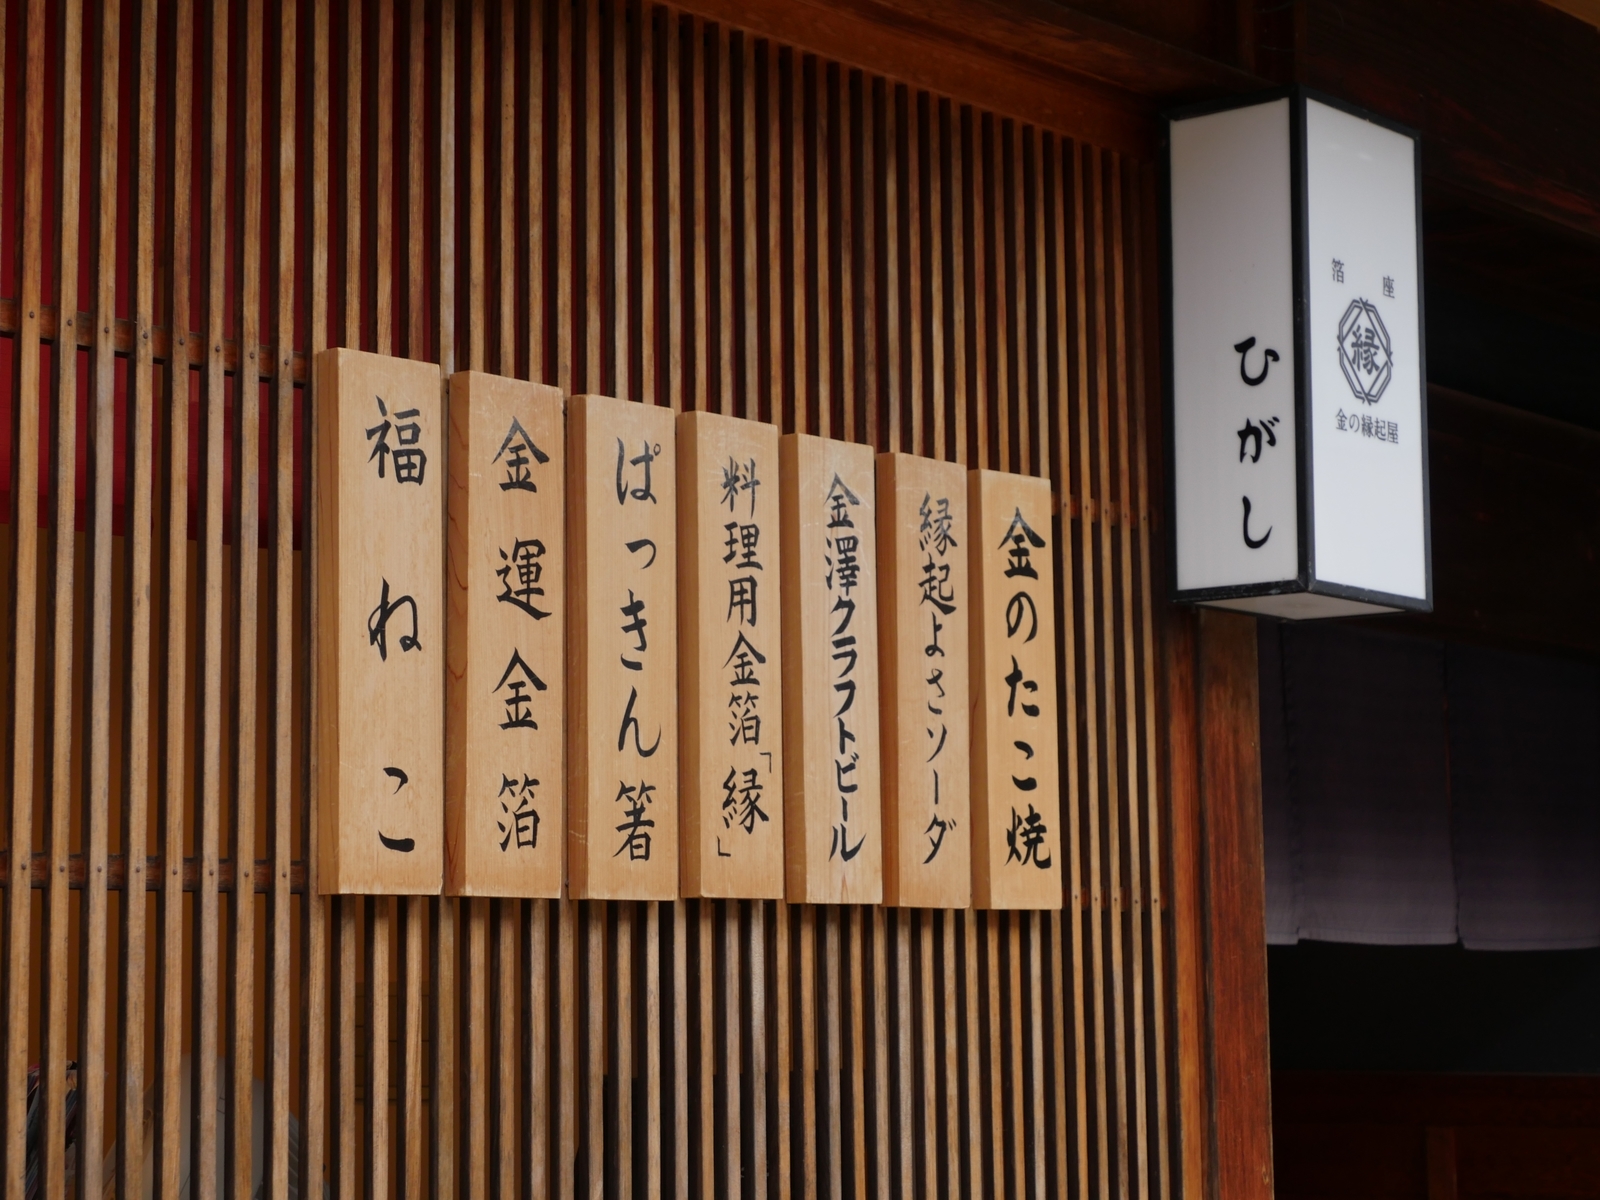 金のたこ焼
縁起よさソーダ
金澤クラフトビール
料理用金箔「縁」
ぱっきん箸
金運金箔
福ねこ
ひがし
箔座
縁
金の縁起屋